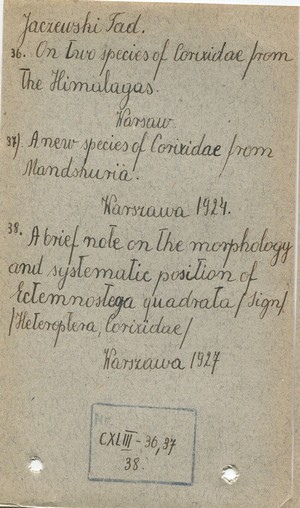 Jaczewski Tad.
36. On two species of Corixidae from
the Himalagas.
Warsaw
37) A new species of Corixidae from
Mandshuria.
Warszawa 1924.
38. A brief note on the morphology
and systematic position of
Ectemnostega quadrata /Sign/
/Heteroptera, Corixidae/
Warszawa 1927
Nr.
CXLIII - 36, 37
38.